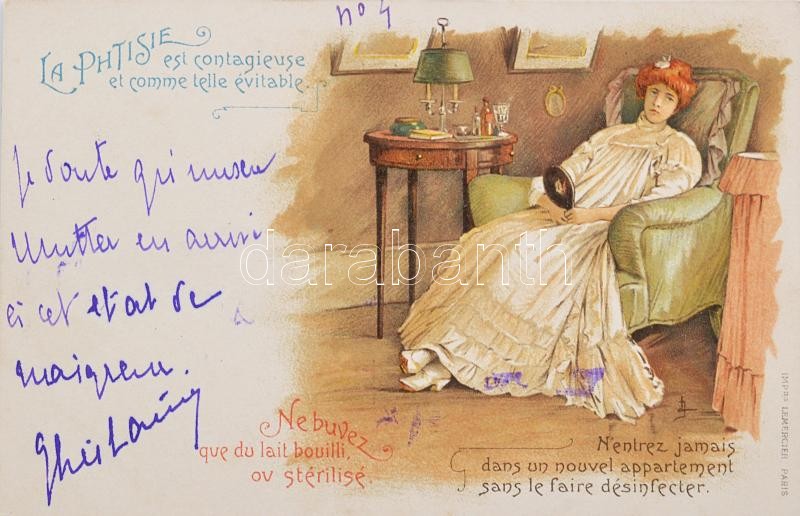 no 4
LA PHTISIE
est contagieuse
et comme telle évitable.
Je doute qu'
Mutter en arrive
à cet état de
maigreur.
Ghislaine
darabanth
Ne buvez
que du lait bouilli,
ou stérilisé.
N'entrez jamais
dans un nouvel appartement
sans le faire désinfecter.
IMPies LEMERCIER PARIS